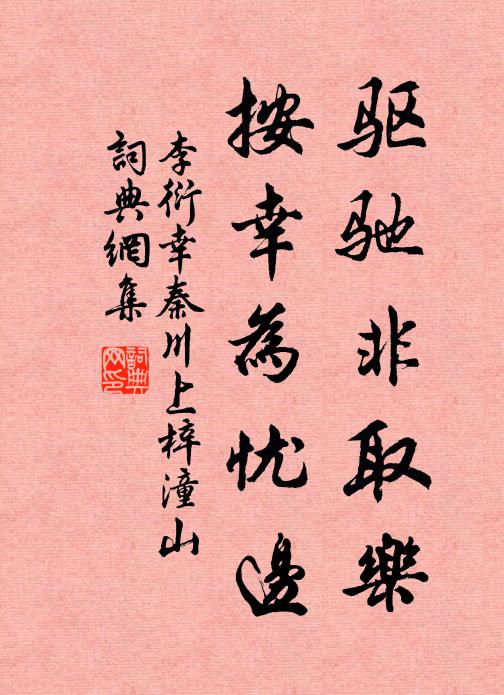 驱驰非取樂
按幸為忧邊
李衍幸秦川上梓潼山
詞典網集
詞典网印